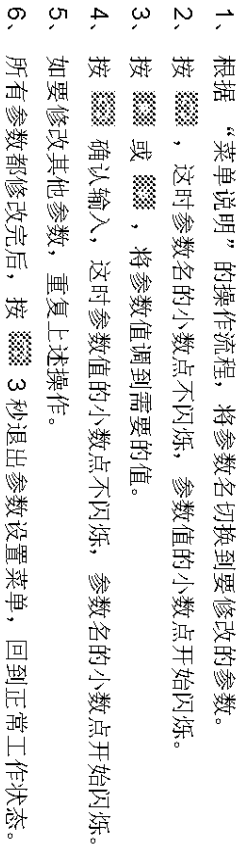 1、根据“菜单说明”的操作流程，将参数名切换到要修改的参数。
2、按 ，这时参数名的小数点不闪烁，参数值的小数点开始闪烁。
3、按 或 ，将参数值调到需要的值。
4、按 确认输入，这时参数值的小数点不闪烁，参数名的小数点开始闪烁。
5、如要修改其他参数，重复上述操作。
6、所有参数都修改完后，按 3 秒退出参数设置菜单，回到正常工作状态。